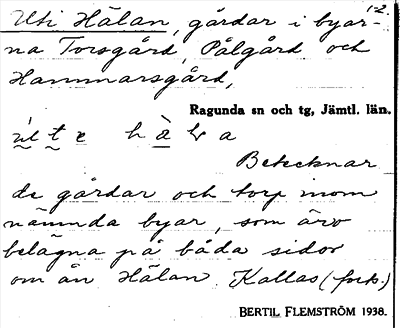 1-2.
Uti Hälan, gårdar i byar-
na Torsgård, Pålgård och
Hammarsgård,
Ragunda sn och tg, Jämtl. län.
Betecknar
de gårdar och torp inom
nämnda byar, som äro
belägna på båda sidor
om ån Hälan. Kallas (forts.)
BERTIL FLEMSTRÖM 1938.